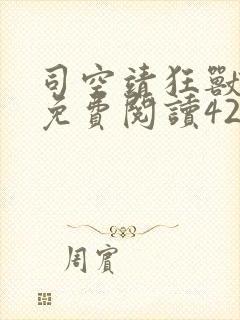 司空請狂獸
免費閱讀42
周賓